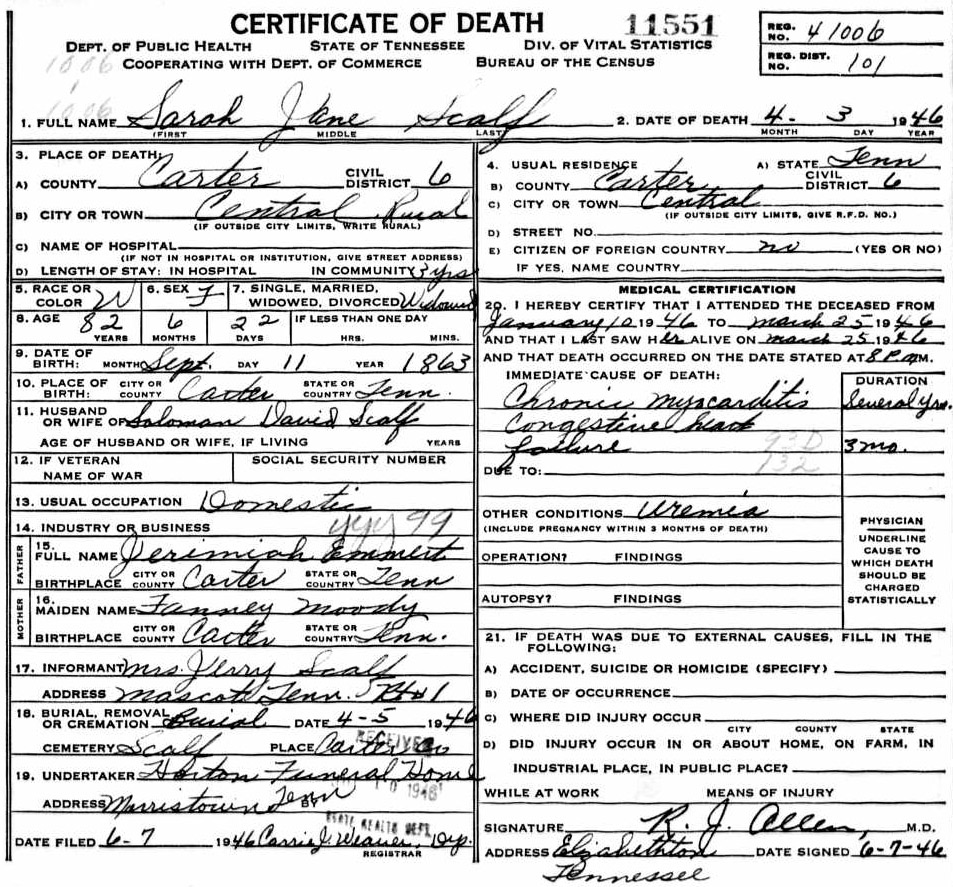 CERTIFICATE OF DEATH 11551
REG. NO. 41006
DEPT. OF PUBLIC HEALTH STATE OF TENNESSEE DIV. OF VITAL STATISTICS
COOPERATING WITH DEPT. OF COMMERCE BUREAU OF THE CENSUS
REG. DIST. NO. 101
1006
1006
1. FULL NAME Sarah Jane Scalf 2. DATE OF DEATH 4- 3 1946
(FIRST) MIDDLE LAST) MONTH DAY YEAR
3. PLACE OF DEATH:
A) COUNTY Carter CIVIL DISTRICT 6
B) CITY OR TOWN Central Rural
(IF OUTSIDE CITY LIMITS, WRITE RURAL)
C) NAME OF HOSPITAL
(IF NOT IN HOSPITAL OR INSTITUTION, GIVE STREET ADDRESS)
D) LENGTH OF STAY: IN HOSPITAL IN COMMUNITY 3 yrs
4. USUAL RESIDENCE A) STATE Tenn
B) COUNTY Carter CIVIL DISTRICT 6
C) CITY OR TOWN Central
(IF OUTSIDE CITY LIMITS, GIVE R.F.D. NO.)
D) STREET NO.
E) CITIZEN OF FOREIGN COUNTRY no (YES OR NO)
IF YES, NAME COUNTRY
5. RACE OR COLOR W 6. SEX F 7. SINGLE, MARRIED, WIDOWED, DIVORCED Widowed
8. AGE 82 6 22 IF LESS THAN ONE DAY
YEARS MONTHS DAYS HRS. MINS.
9. DATE OF BIRTH: MONTH Sept. DAY 11 YEAR 1863
10. PLACE OF BIRTH: CITY OR COUNTY Carter STATE OR COUNTRY Tenn.
11. HUSBAND OR WIFE OF Soloman David Scalf
AGE OF HUSBAND OR WIFE, IF LIVING YEARS
12. IF VETERAN NAME OF WAR SOCIAL SECURITY NUMBER
13. USUAL OCCUPATION Domestic
14. INDUSTRY OR BUSINESS yyy 99
FATHER
15. FULL NAME Jerimiah Emmert
BIRTHPLACE CITY OR COUNTY Carter STATE OR COUNTRY Tenn
MOTHER
16. MAIDEN NAME Fanney Moody
BIRTHPLACE CITY OR COUNTY Carter STATE OR COUNTRY Tenn.
17. INFORMANT Mrs. Jerry Scalf
ADDRESS Mascot Tenn. Rt #1
18. BURIAL, REMOVAL OR CREMATION Burial DATE 4-5 1946
CEMETERY Scalf PLACE Carter Co
RECEIVED
19. UNDERTAKER Horton Funeral Home
10 1946
ADDRESS Morristown Tenn
BY
STATE HEALTH DEPT.
DATE FILED 6-7 1946 Carrie J. Weaver, Dep.
REGISTRAR
MEDICAL CERTIFICATION
20. I HEREBY CERTIFY THAT I ATTENDED THE DECEASED FROM
January 10 1946 TO March 25 1946
AND THAT I LAST SAW Her ALIVE ON March 25 1946
AND THAT DEATH OCCURRED ON THE DATE STATED AT 8 P.M.
IMMEDIATE CAUSE OF DEATH: DURATION
Chronic myocarditis Several yrs.
Congestive heart
failure 3 mo.
93D
132
DUE TO:
OTHER CONDITIONS Uremia
(INCLUDE PREGNANCY WITHIN 3 MONTHS OF DEATH)
OPERATION? FINDINGS
AUTOPSY? FINDINGS
PHYSICIAN
UNDERLINE
CAUSE TO
WHICH DEATH
SHOULD BE
CHARGED
STATISTICALLY
21. IF DEATH WAS DUE TO EXTERNAL CAUSES, FILL IN THE
FOLLOWING:
A) ACCIDENT, SUICIDE OR HOMICIDE (SPECIFY)
B) DATE OF OCCURRENCE
C) WHERE DID INJURY OCCUR
CITY COUNTY STATE
D) DID INJURY OCCUR IN OR ABOUT HOME, ON FARM, IN
INDUSTRIAL PLACE, IN PUBLIC PLACE?
WHILE AT WORK MEANS OF INJURY
SIGNATURE R. J. Allen, M.D.
ADDRESS Elizabethton DATE SIGNED 6-7-46
Tennessee